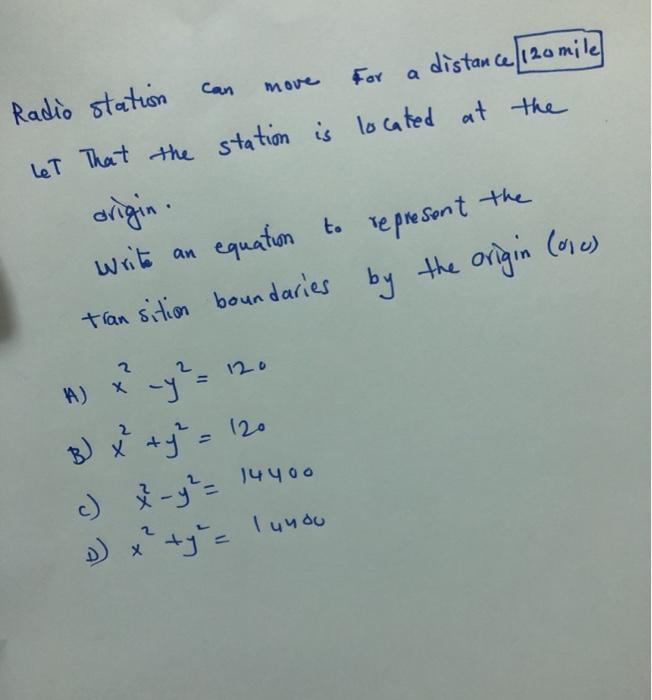 Radio station can move For a distance 120 mile
LeT That the station is located at the
origin.
Write an equation to represent the
transition boundaries by the origin (0,0)
A) x² - y² = 120
B) x² + y² = 120
c) x² - y² = 14400
D) x² + y² = 14400